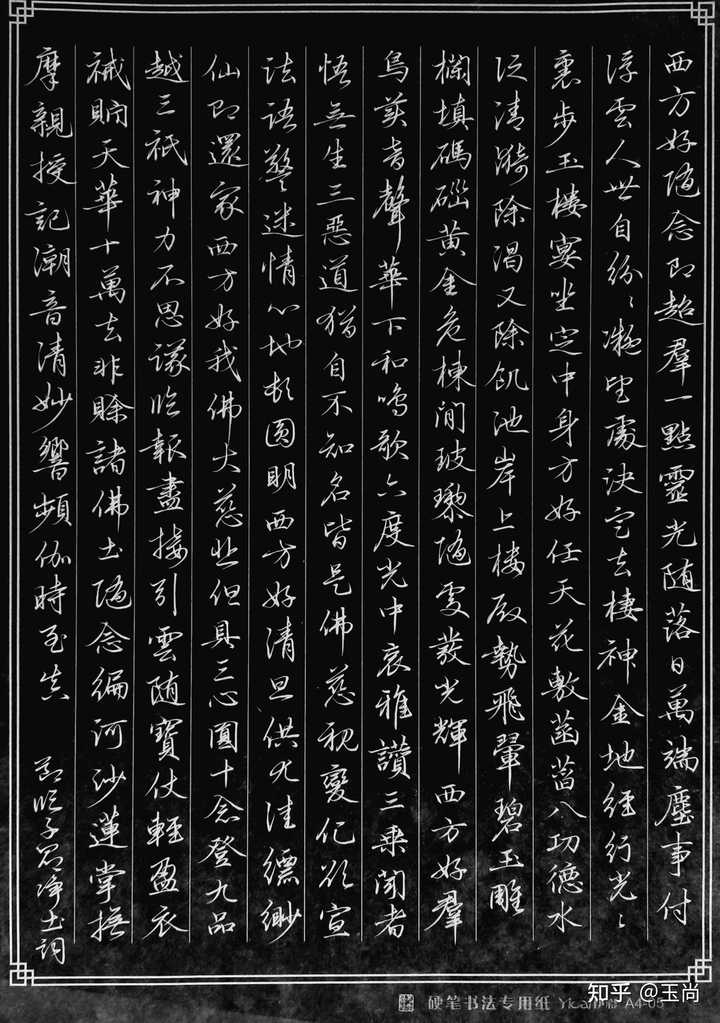 西方好隨念即超羣一點靈光随落日萬端塵事付
浮雲人世自紛〻凝望處決定去棲神金地經行光〻
裏步玉樓宴坐定中身方好任天花敷菡萏八功德水
泛清漪除渴又除飢池岸上樓殿勢飛翬碧玉雕
欄填碼碯黄金危棟間玻瓈隨處發光輝西方好羣
鳥美音聲華下和鳴歌六度光中哀雅讚三乘聞者
悟無生三惡道猶自不知名皆是佛慈親變化欲宣
法語警迷情心地頓圓明西方好清旦供尤佳縹緲
仙即還家西方好我佛大慈悲但具三心圓十念登九品
越三祇神力不思議臨報盡接引雲随寶仗輕盈衣
祴貯天華十萬去非賒諸佛土隨念徧河沙蓮掌撫
摩親授記潮音清妙響頻伽時至
子 淨土詞
硬笔书法专用纸 A4-05
知乎 @玉尚